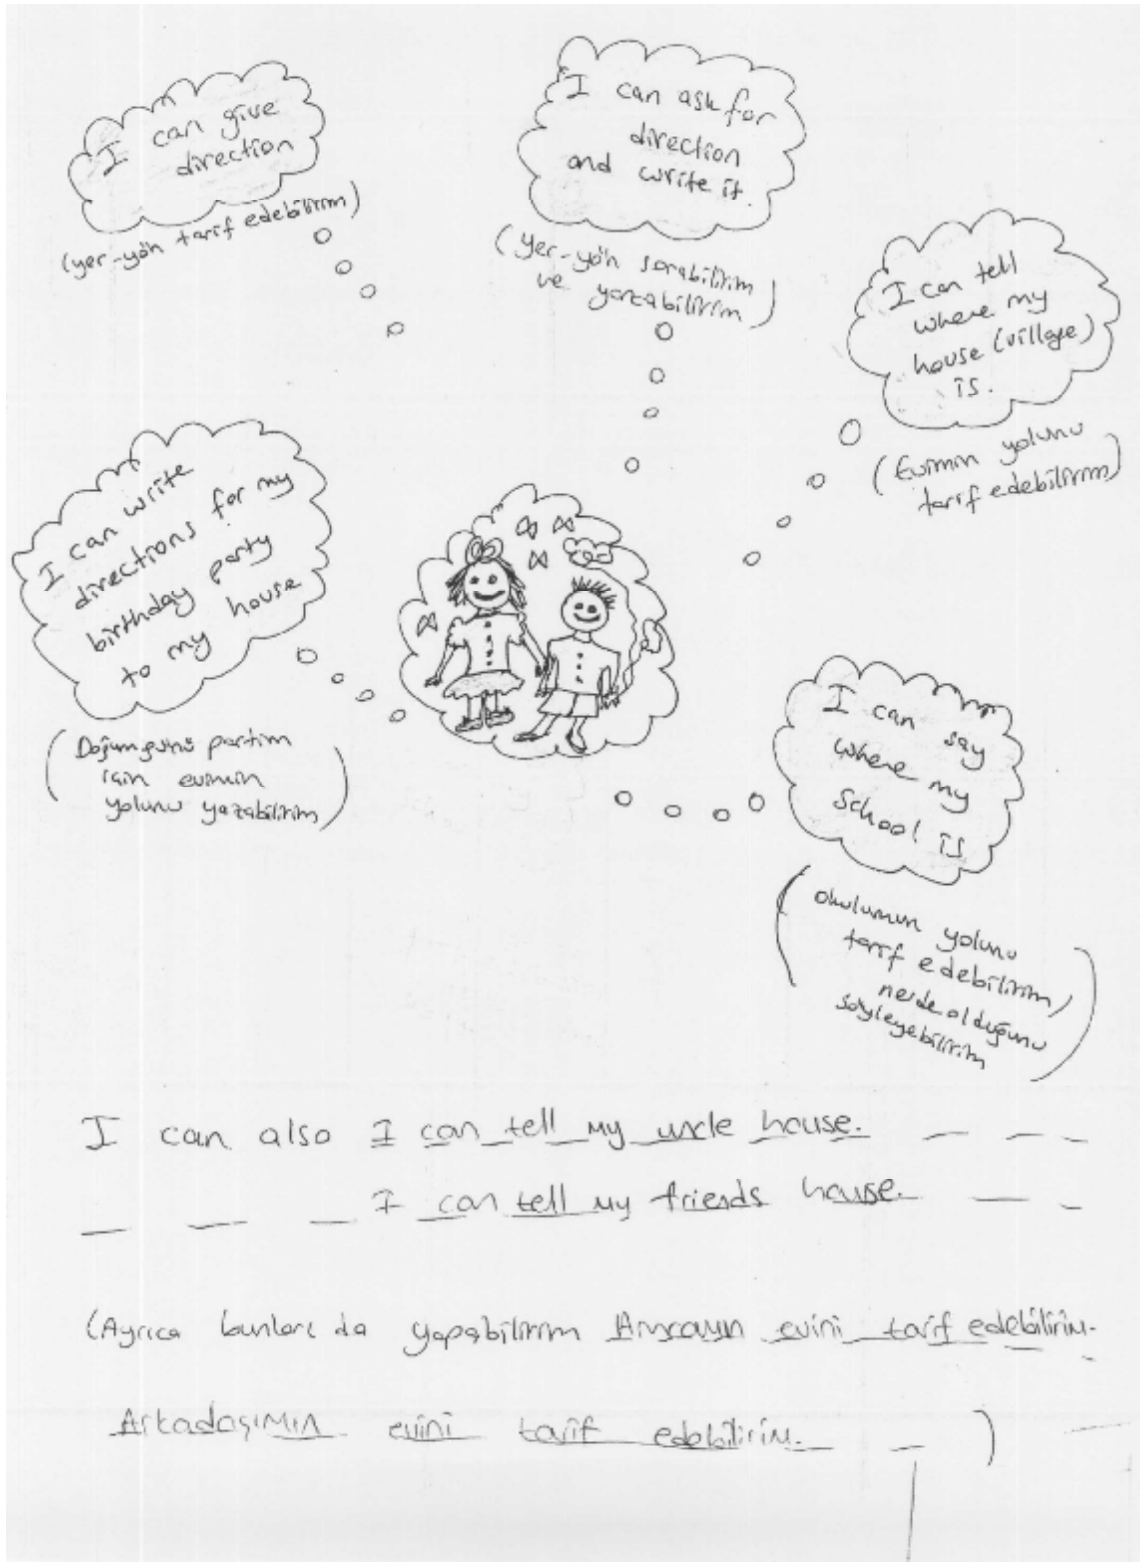 I can give
direction
(yer-yön tarif edebilirim)
I can ask for
direction
and write it.
(yer-yön sorabilirim
ve yazabilirim)
I can tell
where my
house (village)
is.
(Evimin yolunu
tarif edebilirim)
I can write
directions for my
birthday party
to my house
(Doğum günü partim
için evimin
yolunu yazabilirim)
I can say
where my
school is
(okulumun yolunu
tarif edebilirim,
nerde olduğunu
söyleyebilirim)
I can also I can tell my uncle house.
I can tell my friends house.
(Ayrıca bunları da yapabilirim evini tarif edebilirim.
Arkadaşımın evini tarif edebilirim.)